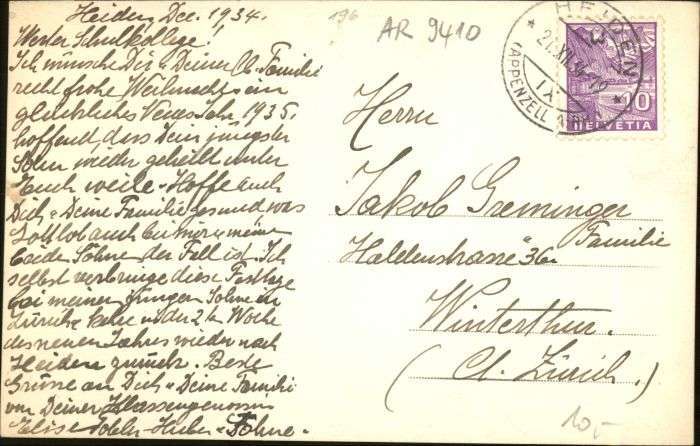 Heiden, Dec. 1934.
Werter Schulkollege!
Ich wünsche Dir u. Deiner lb. Familie
recht frohe Weihnacht u. ein
glückliches Neues Jahr, 1935.
hoffend, dass Dein jüngster
Sohn wieder geheilt unter
Euch weile. Hoffe auch
Dich u. Deine Familie gesund, was
Gottlob auch bei mir u. meine
beide Söhne der Fall ist. Ich
selbst verbringe diese Festtage
bei meinem jüngern Sohne in
Zürich, kehre in der 2ten Woche
des neuen Jahres wieder nach
Heiden zurück. Beste
Grüsse an Dich u. Deine Familie
von Deiner Klassengenossin
Elise Tobler-Huber u. Söhne.
196
AR 9410
HEIDEN
21.XII.34-10
(APPENZELL
10
HELVETIA
Herrn
Jakob Greminger
Familie
Haldenstrasse "36a
Winterthur.
(Ct. Zürich.)
10,-